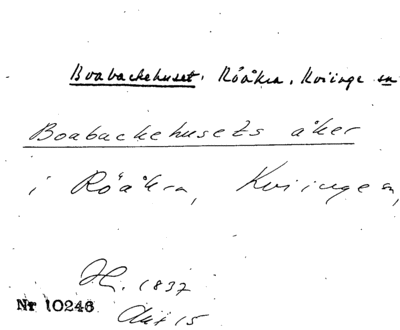 Boabackehuset. Röåkra, Kviinge sn
Boabackehusets åker
i Röåkra, Kviinge sn,
H. 1837
Nr 10246
Akt 15